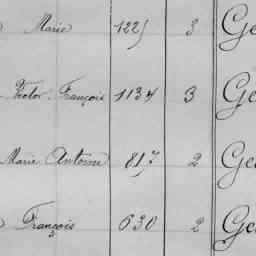 Marie 1225 3 Ge
Victor François 1134 3 Ge
Marie Antoine 817 2 Ge
François 630 2 Ge